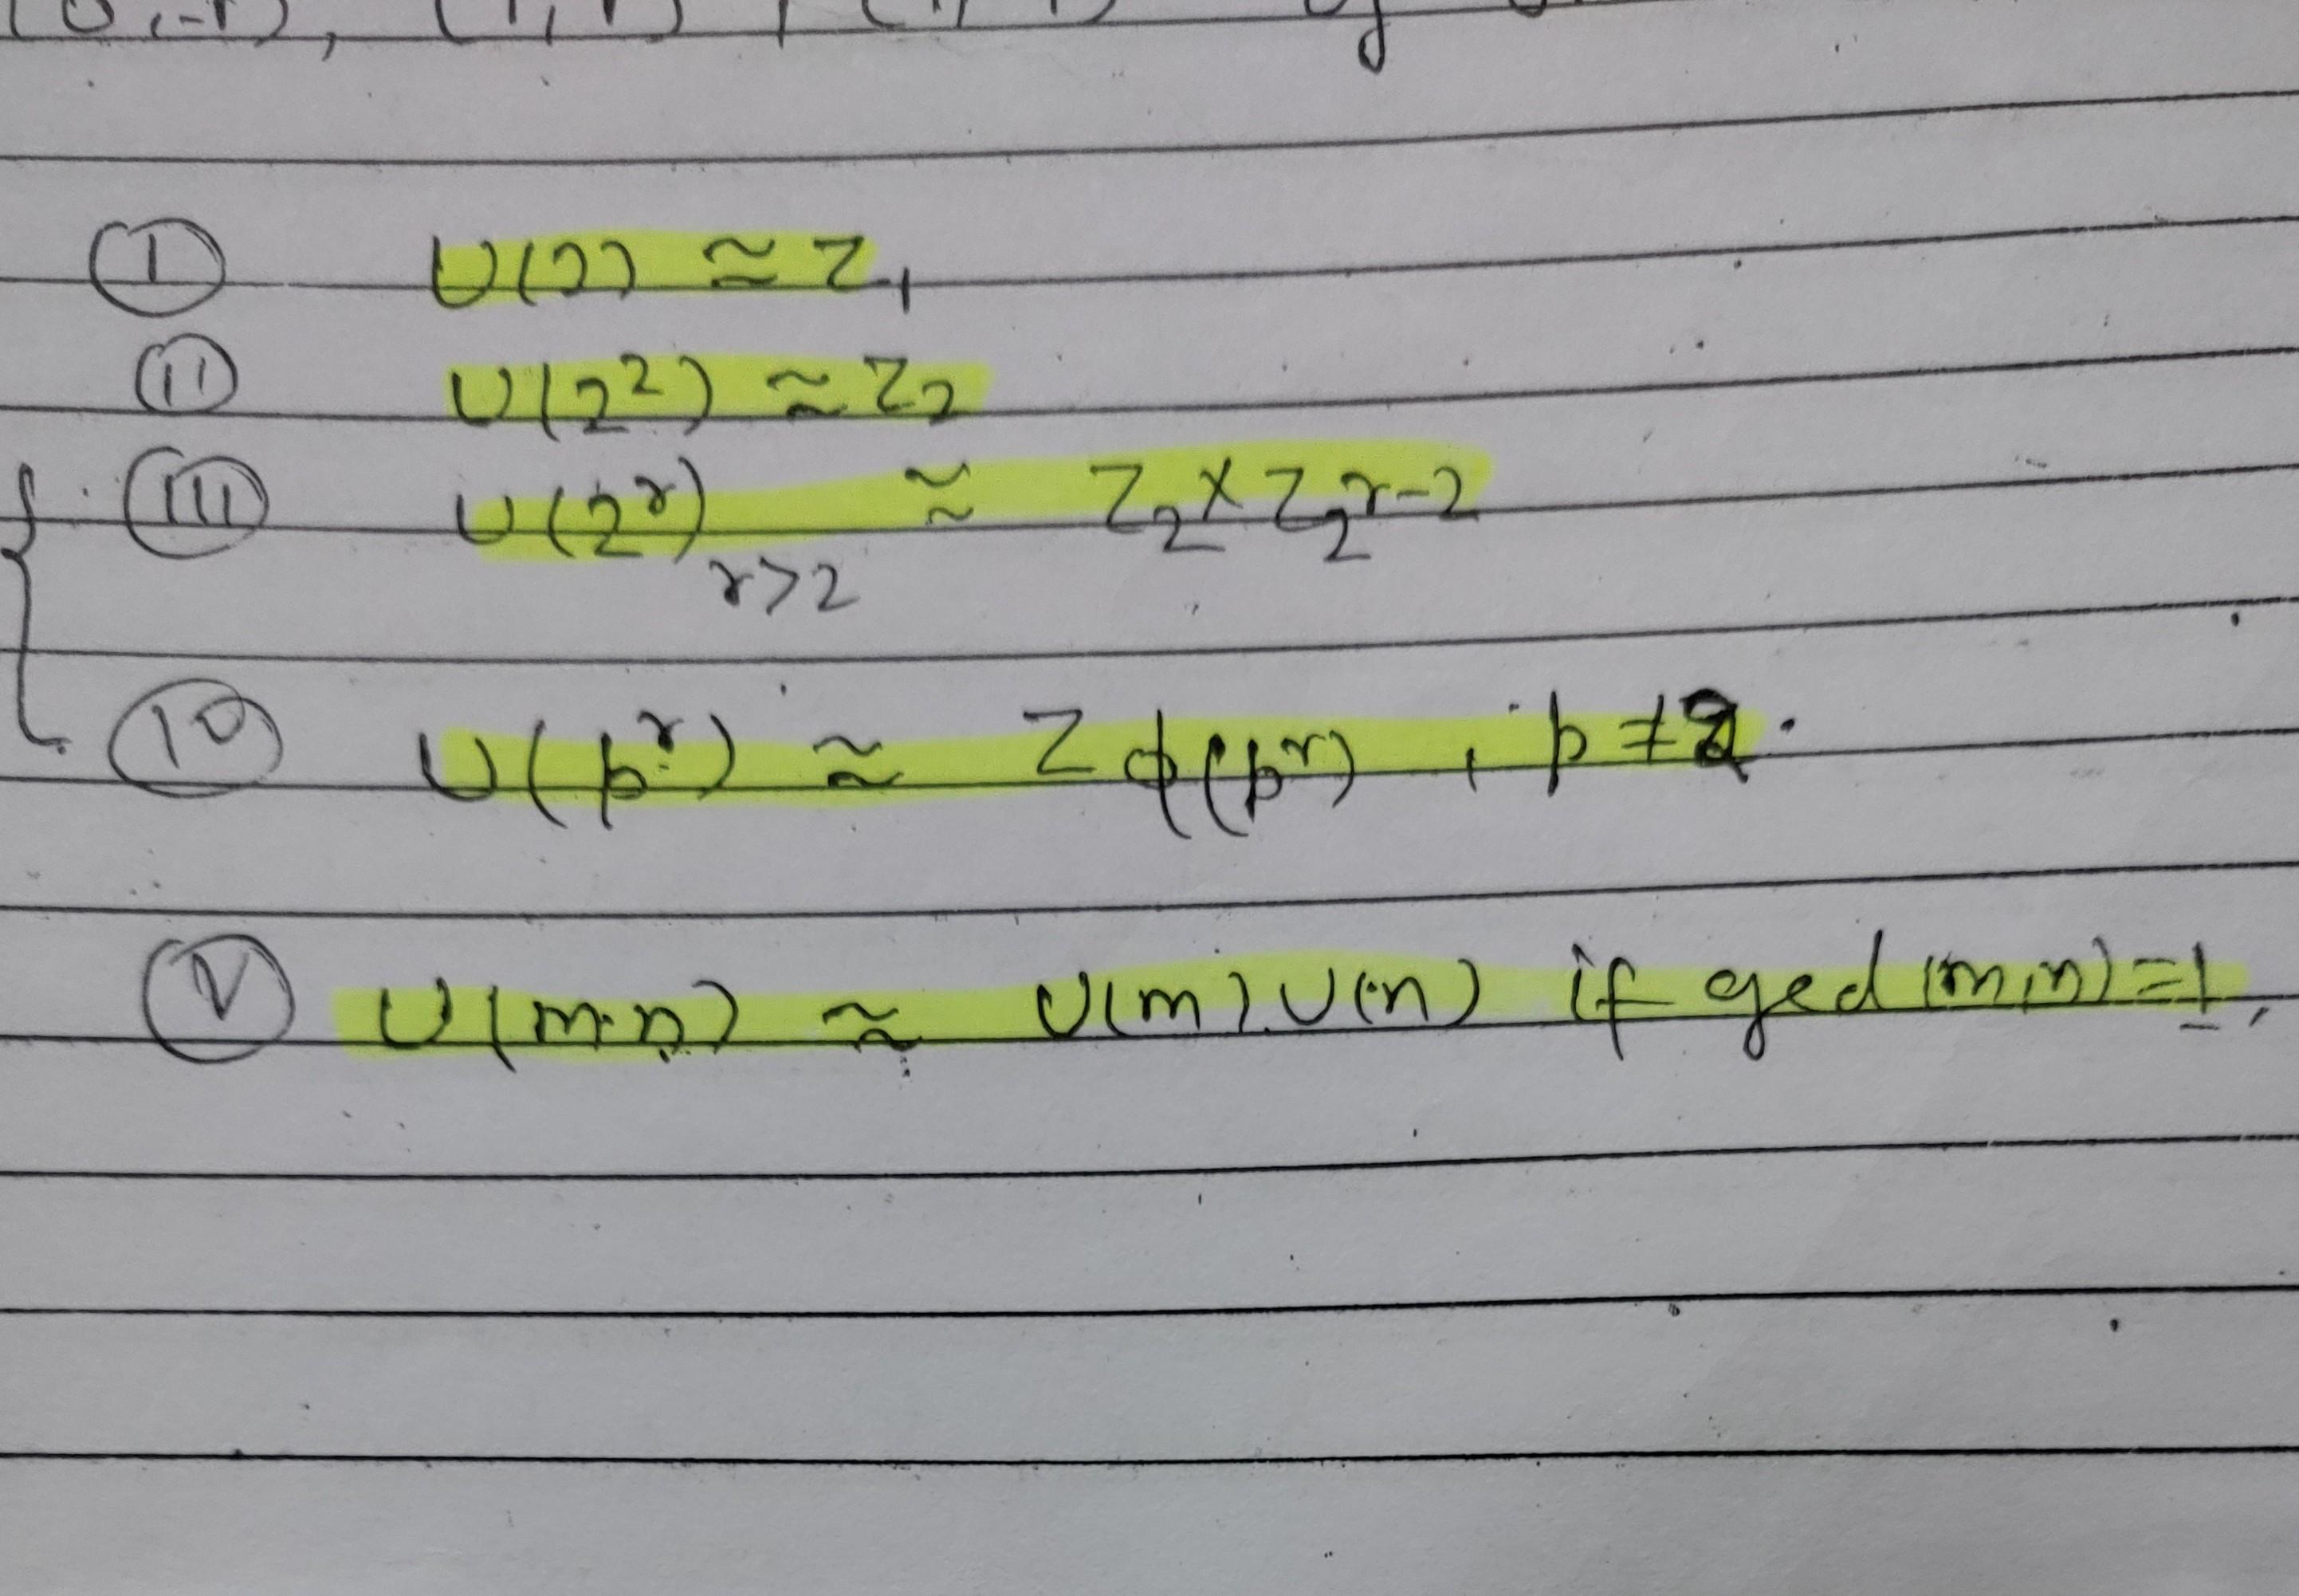 (I) U(2) ≅ Z₁
(II) U(2²) ≅ Z₂
(III) U(2^r) ≅ Z₂ × Z_2^r-2
r>2
(IV) U(p^r) ≅ Z_ϕ(p^r) , p ≠ 2.
(V) U(m·n) ≅ U(m).U(n) if gcd (m,n) = 1,